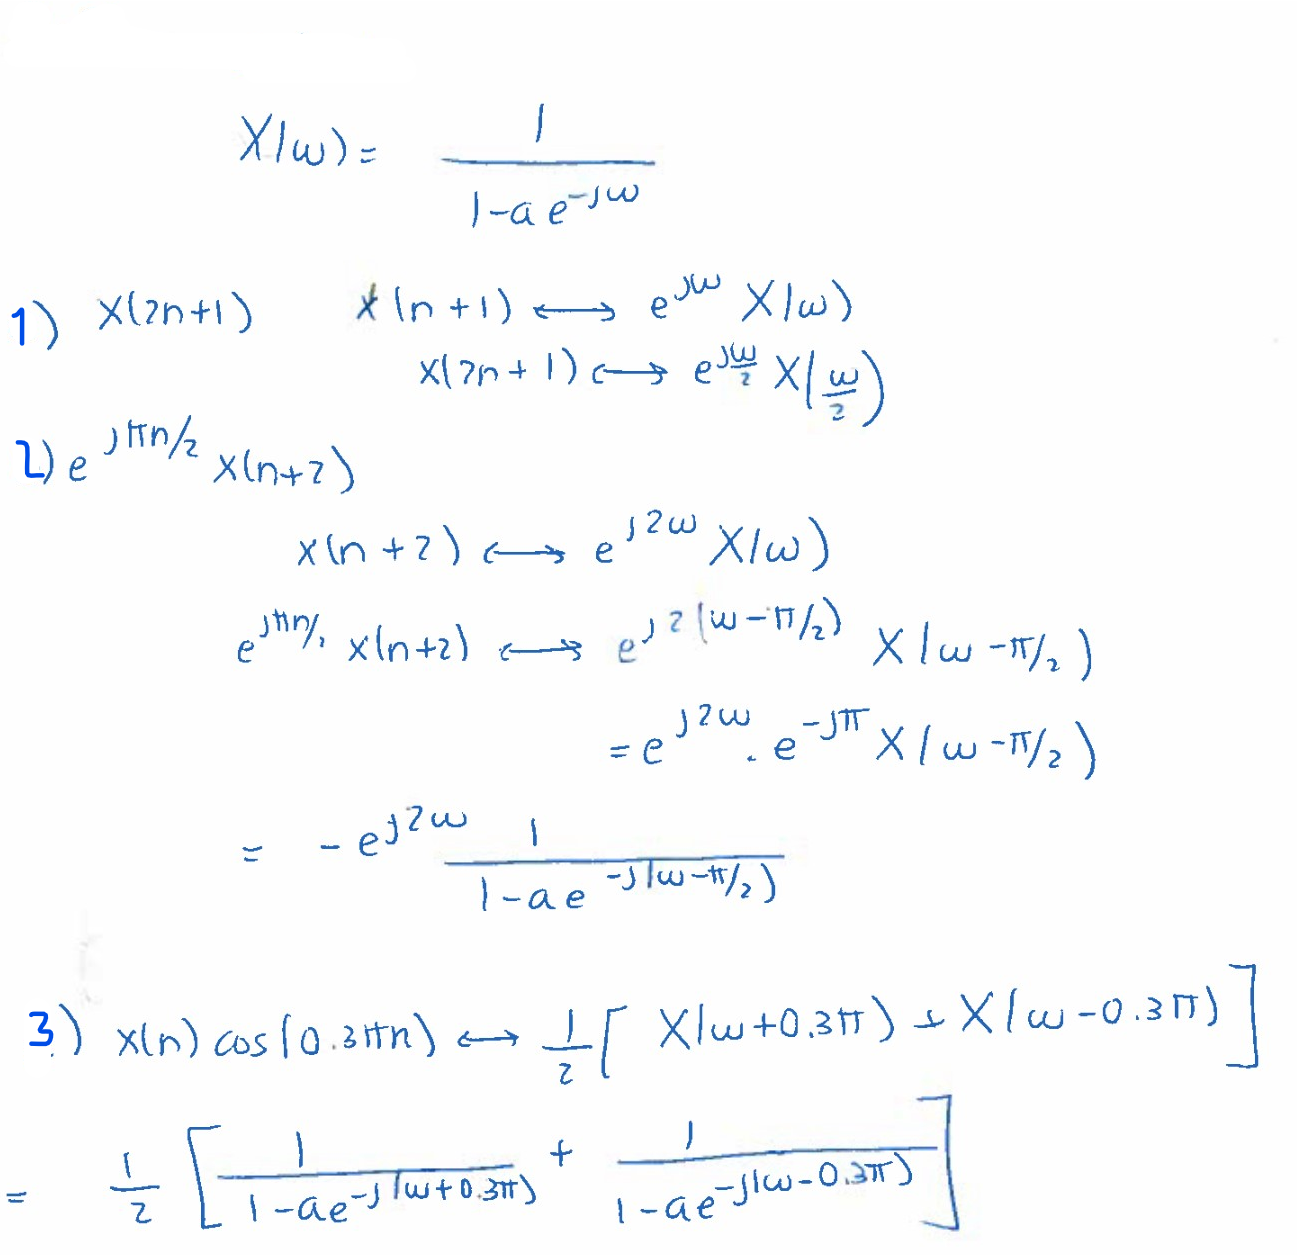 X(ω) = 1 / (1-a e^{-jω})
1) x(2n+1) x(n+1) ↔ e^{jω} X(ω)
x(2n+1) ↔ e^{jω/2} X(ω/2)
2) e^{jπn/2} x(n+2)
x(n+2) ↔ e^{j2ω} X(ω)
e^{jπn/2} x(n+2) ↔ e^{j2(ω-π/2)} X(ω-π/2)
= e^{j2ω} . e^{-jπ} X(ω-π/2)
= - e^{j2ω} 1 / (1-a e^{-j(ω-π/2)})
3.) x(n) cos(0.3πn) ↔ 1/2 [ X(ω+0.3π) + X(ω-0.3π) ]
= 1/2 [ 1 / (1-ae^{-j(ω+0.3π)}) + 1 / (1-ae^{-j(ω-0.3π)}) ]